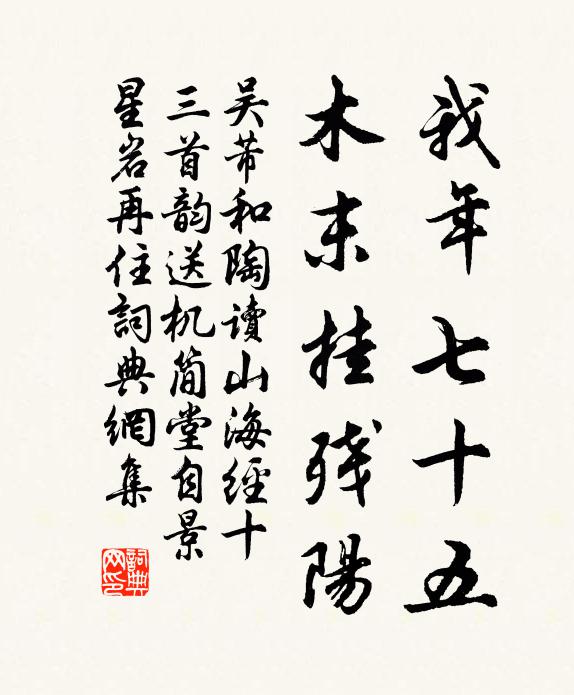 我年七十五
木末挂残陽
吴芾和陶讀山海經十
三首韵送机简堂自景
星岩再住詞典網集
詞典網印